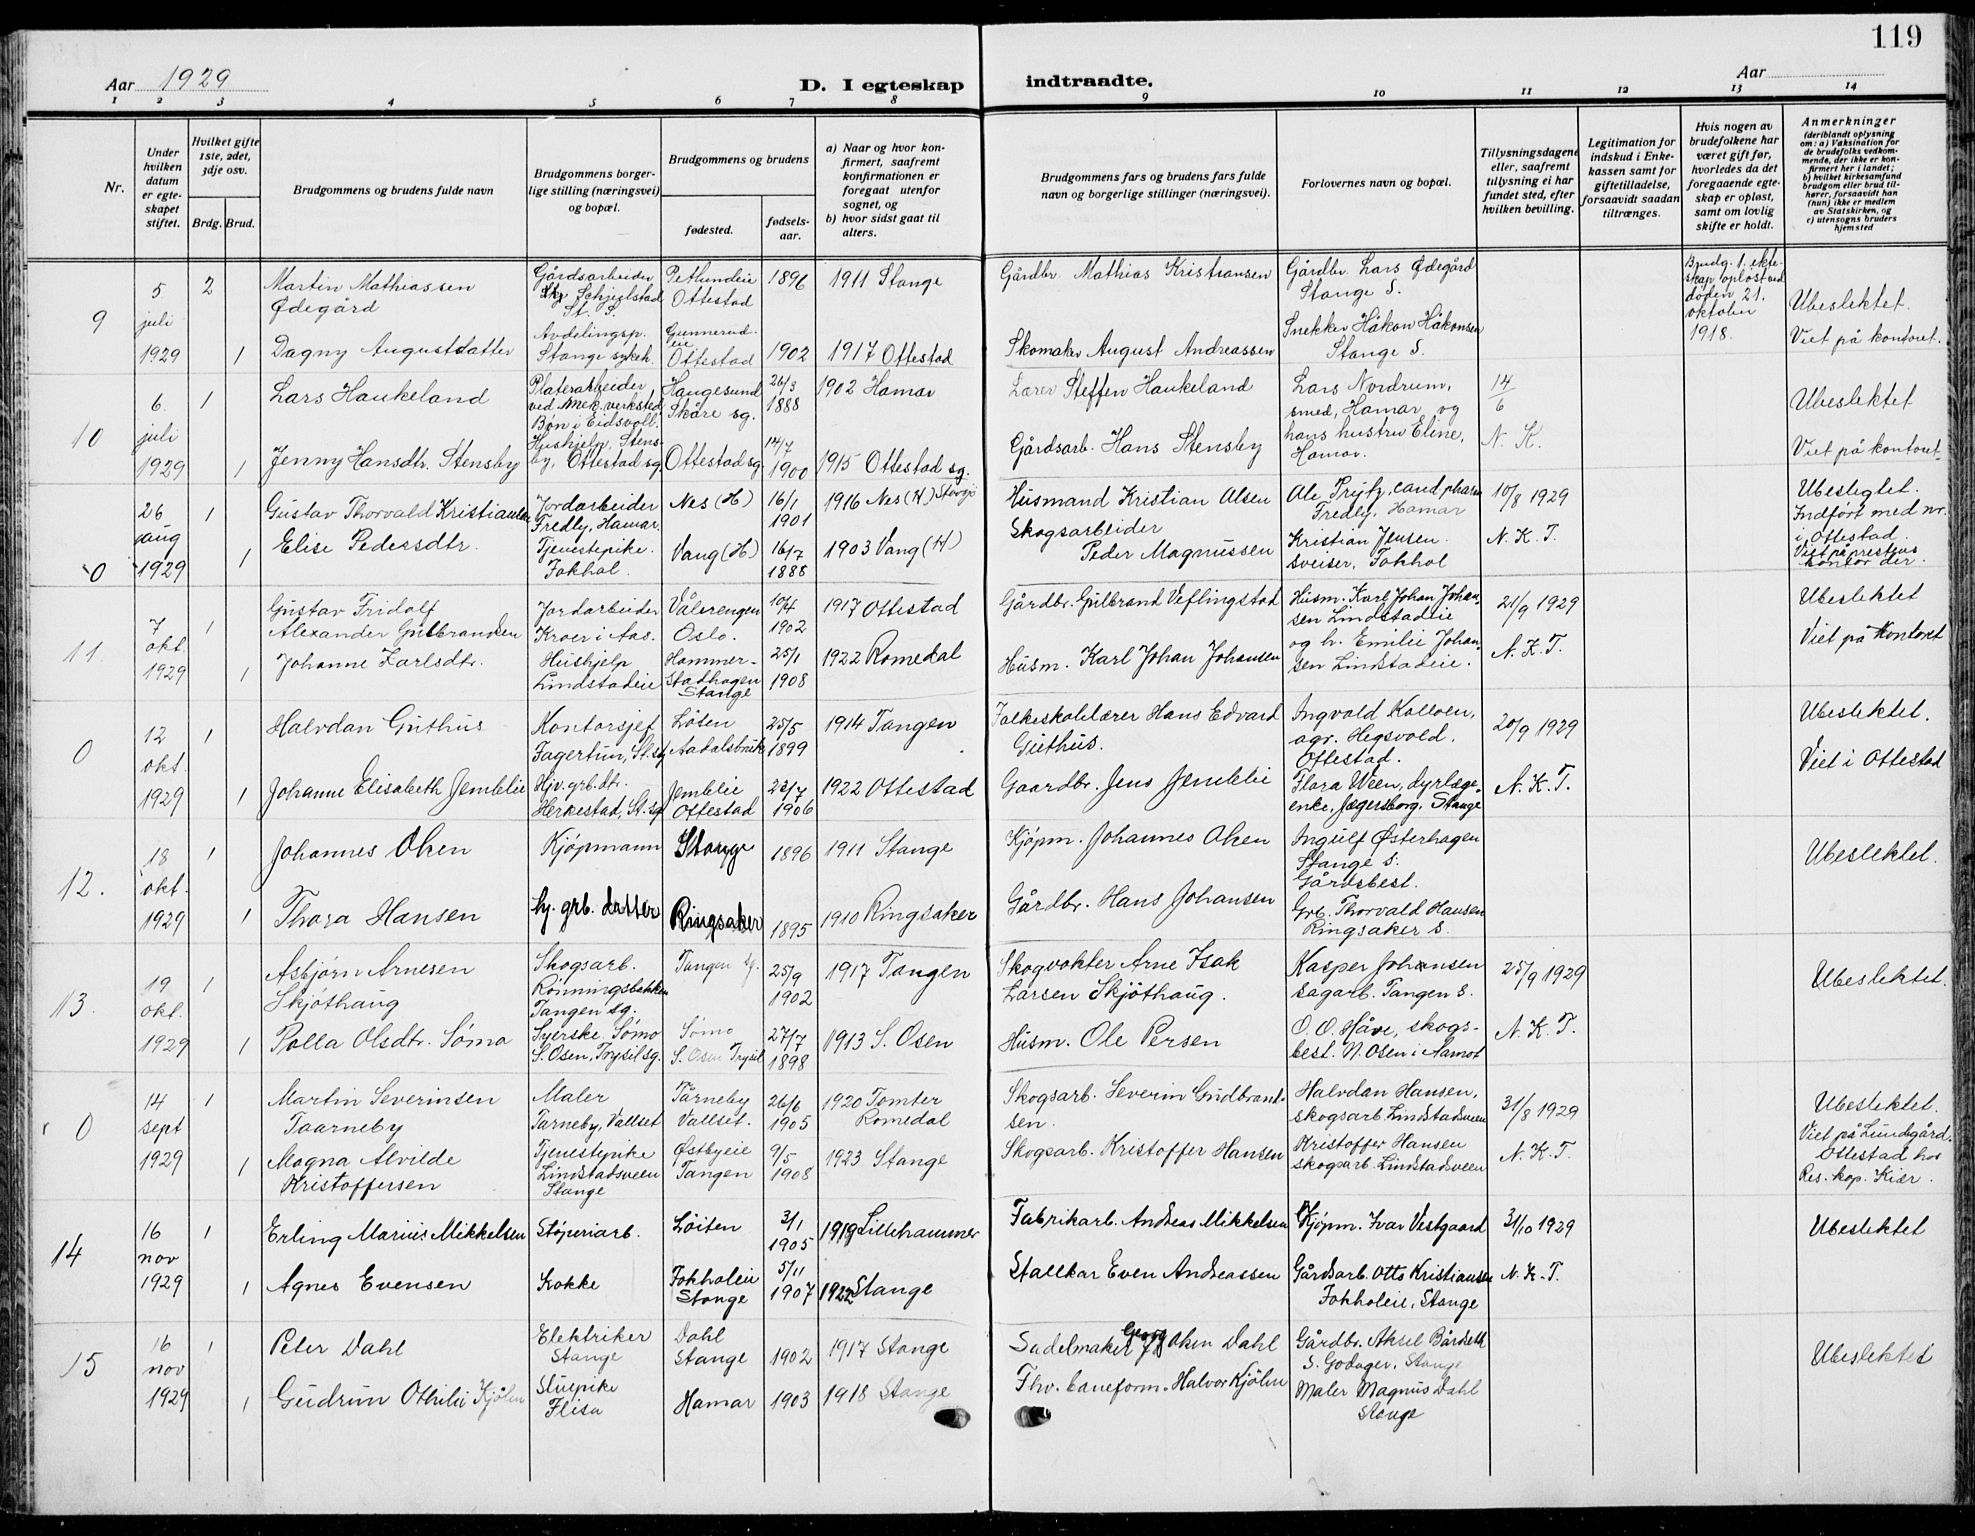 119
Aar 1929
D. I egteskap indtraadte.
Aar
1 2 3 4 5 6 7 8 9 10 11 12 13 14
Nr.
Under hvilken datum er egteskapet stiftet.
Hvilket gifte 1ste, 2det, 3dje osv.
Brdg. Brud.
Brudgommens og brudens fulde navn
Brudgommens borgerlige stilling (næringsvei) og bopæl.
Brudgommens og brudens
fødested.
fødselsaar.
a) Naar og hvor konfirmert, saafremt konfirmationen er foregaat utenfor sognet, og
b) hvor sidst gaat til alters.
Brudgommens fars og brudens fars fulde navn og borgerlige stillinger (næringsvei).
Forlovernes navn og bopæl.
Tillysningsdagene eller, saafremt tillysning ei har fundet sted, efter hvilken bevilling.
Legitimation for indskud i Enkekassen samt for giftetilladelse, forsaavidt saadan tiltrænges.
Hvis nogen av brudefolkene har været gift før, hvorledes da det foregaaende egteskap er opløst, samt om lovlig skifte er holdt.
Anmerkninger
(deriblandt oplysning om: a) Vaksination for de brudefolks vedkommende, der ikke er konfirmert her i landet; b) hvilket kirkesamfund brudgom eller brud tilhører, forsaavidt han (hun) ikke er medlem av Statskirken, og c) utensogns bruders hjemsted
9
5 juli 1929
2
Martin Mathiassen Ødegård
Gårdsarbeider Schjelstad St. S.
Ottestad
1896
1911 Stange
Gårdbr. Mathias Kristiansen
Gårdbr. Lars Ødegård Stange S.
Brudg. 1. ekteskap opløst ved døden 21. oktober 1918.
Ubeslektet.
1
Dagny Augustdatter
Avdelingsp. Stange sykeh.
Gunnerudeie Ottestad
1902
1917 Ottestad
Skomaker August Andreassen
Snekker Håkon Håkonsen Stange S.
Viet på kontoret.
10
6. juli 1929
1
Lars Haukeland
Platearbeider ved mek. verksted Bøn i Eidsvoll.
Haugesund Skåre sg.
26/3 1888
1902 Hamar
Lærer Steffen Haukeland
Lars Nordrum, smed, Hamar og hans hustru Eline, Hamar.
14/6
N. K.
Ubeslektet
1
Jenny Hansdtr. Stensby
Hushjelp. Stensby, Ottestad sg
Ottestad sg.
14/7 1900
1915 Ottestad sg.
Gårdsarb. Hans Stensby
Viet på kontoret
0
26 aug 1929
1
Gustav Thorvald Kristiansen
Jordarbeider Fredly, Hamar.
Nes (H)
16/1 1901
1916 Nes (H)
Husmand Kristian Olsen
Ole Prytz, cand. pharm Fredly, Hamar
10/8 1929
Ubeslegtet.
Indført med nr. i Ottestad.
Viet på prestens kontor der.
1
Elise Pedersdtr.
Tjenestepike. Fokhol.
Vang (H)
16/7 1888
1903 Vang (H)
Skogsarbeider Peder Magnussen
Kristian Jensen. sveiser, Fokhol
N. K. T.
11
7 okt. 1929
1
Gustav Fridolf Alexander Gulbrandsen
Jordarbeider Kroer i Aas.
Vålerengen Oslo.
10/4 1902
1917 Ottestad
Gårdbr. Gulbrand Veflingstad
Husm. Karl Johan Johansen Lindstadeie
21/9 1929
Ubeslektet
1
Johanne Karlsdtr.
Hushjelp Lindstadeie
Hammerstadhagen Stange
25/1 1908
1922 Romedal
Husm. Karl Johan Johansen
og h. Emilie Johansen Lindstadeie.
N. K. T.
Viet på kontoret
0
12 okt. 1929
1
Halvdan Guthus
Kontorsjef Fagertun, St. sg
Løten Aadalsbruk
25/5 1899
1914 Tangen
Folkeskolelærer Hans Edvard Guthus.
Ingvald Kolloen, agr. Hegsvold. Ottestad.
20/9 1929
Ubeslektet.
1
Johanne Elisabeth Jemblie
Hjv. grb. dtr. Herkestad, St. sg
Jemblie Ottestad
22/7 1906
1922 Ottestad
Gaardbr. Jens Jemblie
Flora Ween, dyrlægeenke, Jægersborg, Stange
N. K. T.
Viet i Ottestad
12.
18 okt. 1929
1
Johannes Olsen
Kjøpmann
Stange
1896
1911 Stange
Kjøpm. Johannes Olsen
Ingulf Østerhagen Stange S. Gårdsbest.
Ubeslektet.
1
Thora Hansen
hj. grb. datter
Ringsaker
1895
1910 Ringsaker
Gårdbr. Hans Johansen
Grb. Thorvald Hansen Ringsaker S.
13.
19 okt. 1929
1
Asbjørn Arnesen Skjøthaug
Skogsarb. Rønningsbakken Tangen sg.
Tangen sg.
25/9 1902
1917 Tangen
Skogvokter Arne Isak Larsen Skjøthaug.
Kasper Johansen sagarb. Tangen S.
25/9 1929
Ubeslektet.
1
Polla Olsdtr. Sømo
Syerske Sømo S. Osen, Trysil sg.
Sømo S. Osen Trysil
27/7 1898
1913 S. Osen
Husm. Ole Persen
O. O. Håve, skogsbest. N. Osen i Aamot
N. K. T.
0
14 sept 1929
1
Martin Severinsen Taarneby
Maler Tarneby, Vallset
Tårneby Vallset.
26/6 1905
1920 Tomter Romedal
Skogsarb. Severin Gudbrandsen.
Halvdan Hansen, skogsarb. Lindstadsveen
31/8 1929
Ubeslektet.
Viet på Lundgård, Ottestad hos Res. kap. Kiær.
1
Magna Alvilde Kristoffersen
Tjenestepike Lindstadsveen Stange
Østbyeie Tangen
9/5 1908
1923 Stange
Skogsarb. Kristoffer Hansen
Kristoffer Hansen skogsarb. Lindstadsveen
N. K. T.
14
16 nov 1929
1
Erling Marius Mikkelsen
Støperiarb.
Løiten
3/1 1905
1919 Lillehammer
Fabrikarb. Andreas Mikkelsen
Kjøpm. Ivar Vestgaard
31/10 1929
Ubeslektet
1
Agnes Evensen
Kokke
Fokholeie Stange
5/11 1907
1922 Stange
Stallkar Even Andreassen
Gårdsarb. Otto Kristiansen Fokholeie, Stange
N. K. T.
15
16 nov 1929
1
Peter Dahl
Elektriker Stange
Dahl Stange
1902
1917 Stange
Sadelmaker Georg Olsen Dahl
Gårdbr. Aksel Bårdseth S. Godager, Stange
Ubeslektet
1
Gudrun Othilie Kjølen
Stuepike Flisa
Hamar
1903
1918 Stange
Fhv. baneform. Halvor Kjølen
Maler Magnus Dahl Stange